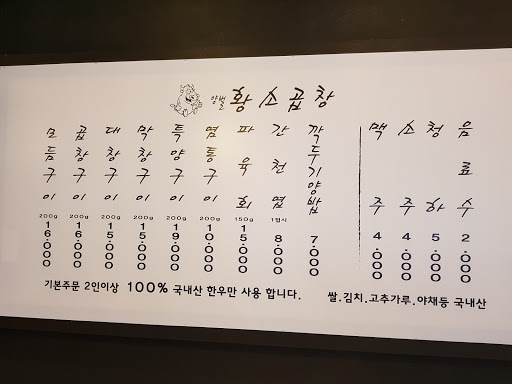 양벌 황소곱창
모듬구이 200g 16,000
곱창구이 200g 16,000
대창구이 200g 15,000
막창구이 200g 15,000
특양구이 200g 19,000
염통구이 200g 10,000
파육회 150g 15,000
간천엽 1접시 8,000
깍두기양밥 7,000
맥주 4,000
소주 4,000
청하 5,000
음료수 2,000
기본주문 2인이상 100% 국내산 한우만 사용 합니다.
쌀.김치.고추가루.야채등 국내산